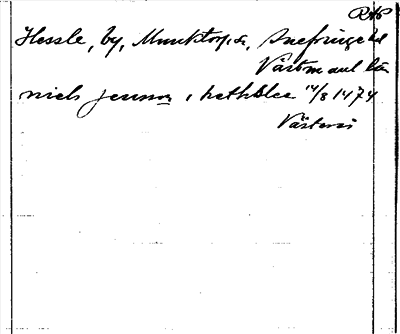 RAP
Hessle, by, Munktorp, sn, Snefringe hd
Västmanl län
niels jenson i hethslee 14/8 1474
Västerås